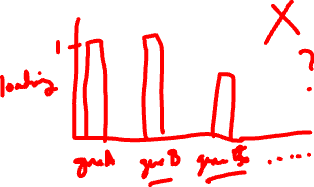 X
?
1
loading
gene A gene B gene ......